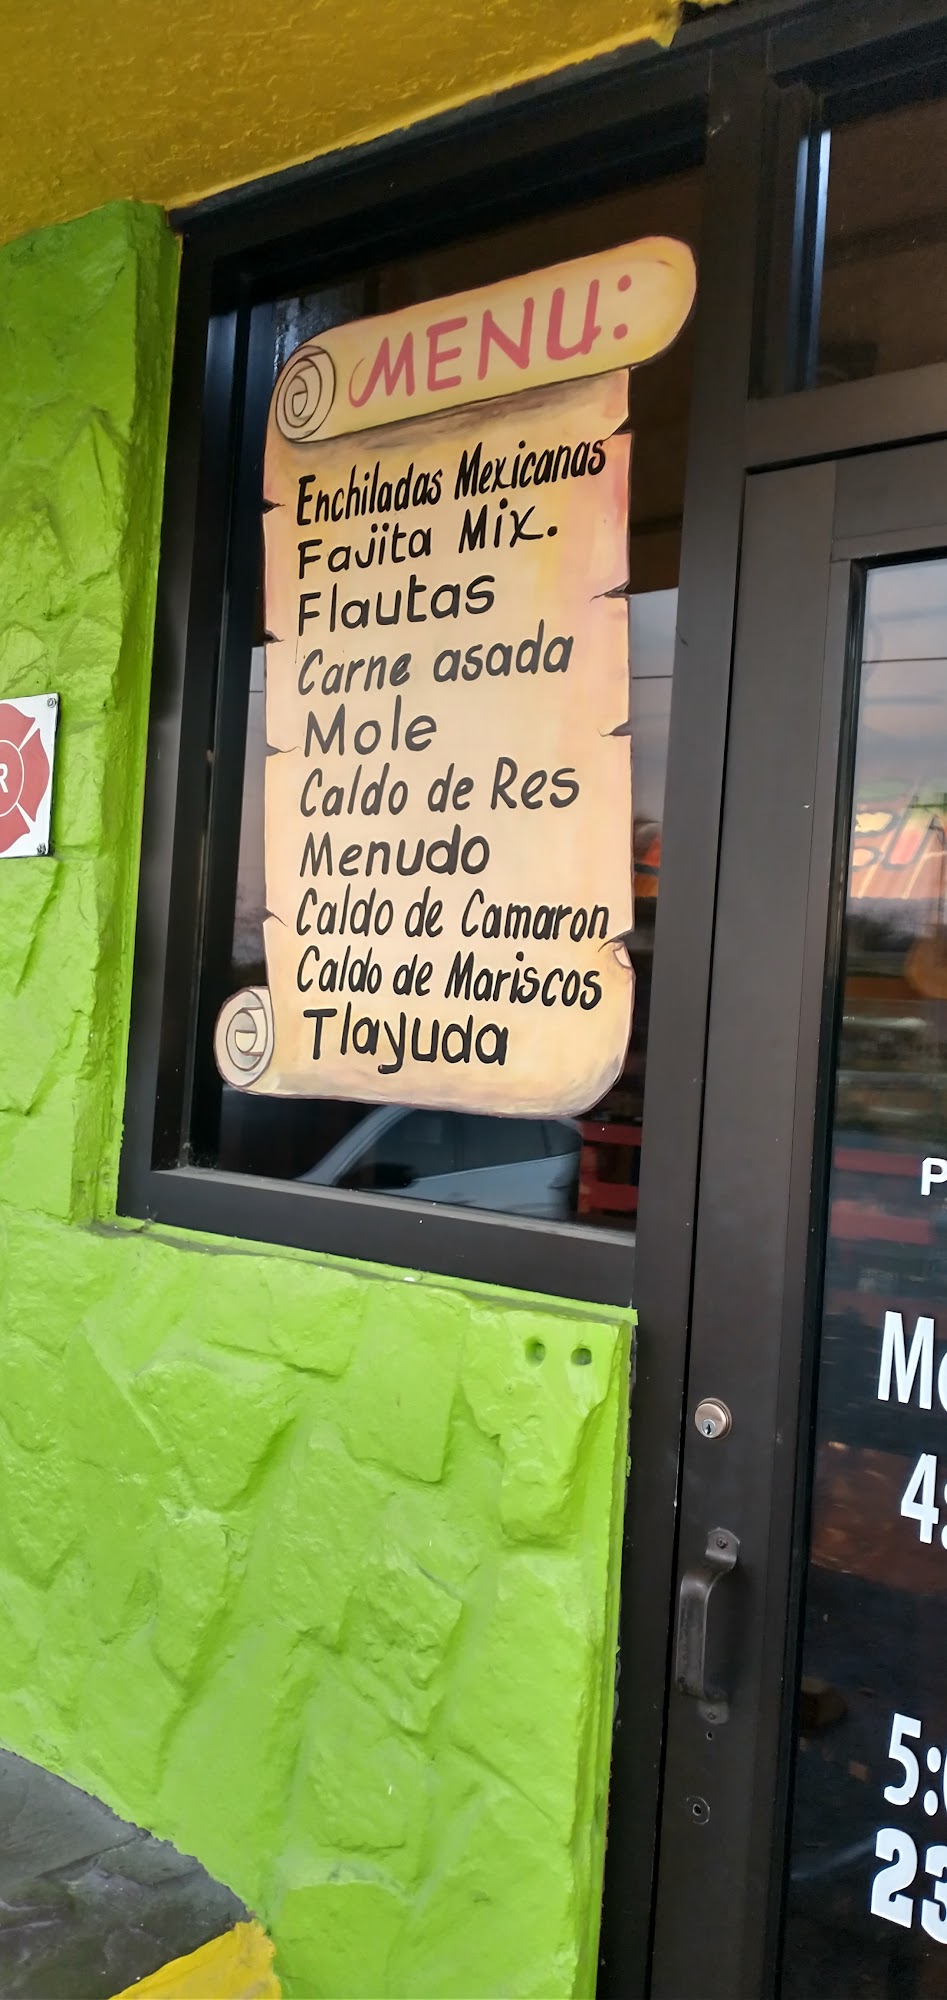 MENU:
Enchiladas Mexicanas
Fajita Mix.
Flautas
Carne asada
Mole
Caldo de Res
Menudo
Caldo de Camaron
Caldo de Mariscos
Tlayuda
R